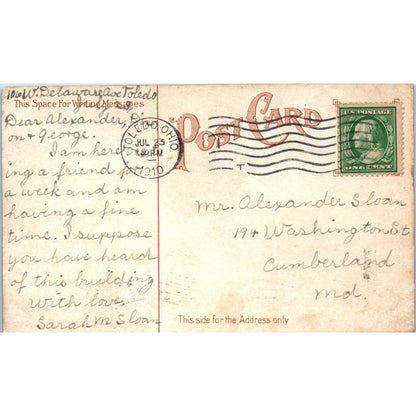 106 W. Delaware Ave Toledo
July 23
This Space For Writing Messages
Dear Alexander,
on & George.
I am here
ing a friend for
a week and am
having a fine
time. I suppose
you have heard
of this building
With love.
Sarah M Sloan
POST CARD
TOLEDO, OHIO.
JUL 23
PM
1910
T
U.S. POSTAGE
ONE CENT
Mr. Alexander Sloan
194 Washington St
Cumberland
Md.
This side for the Address only